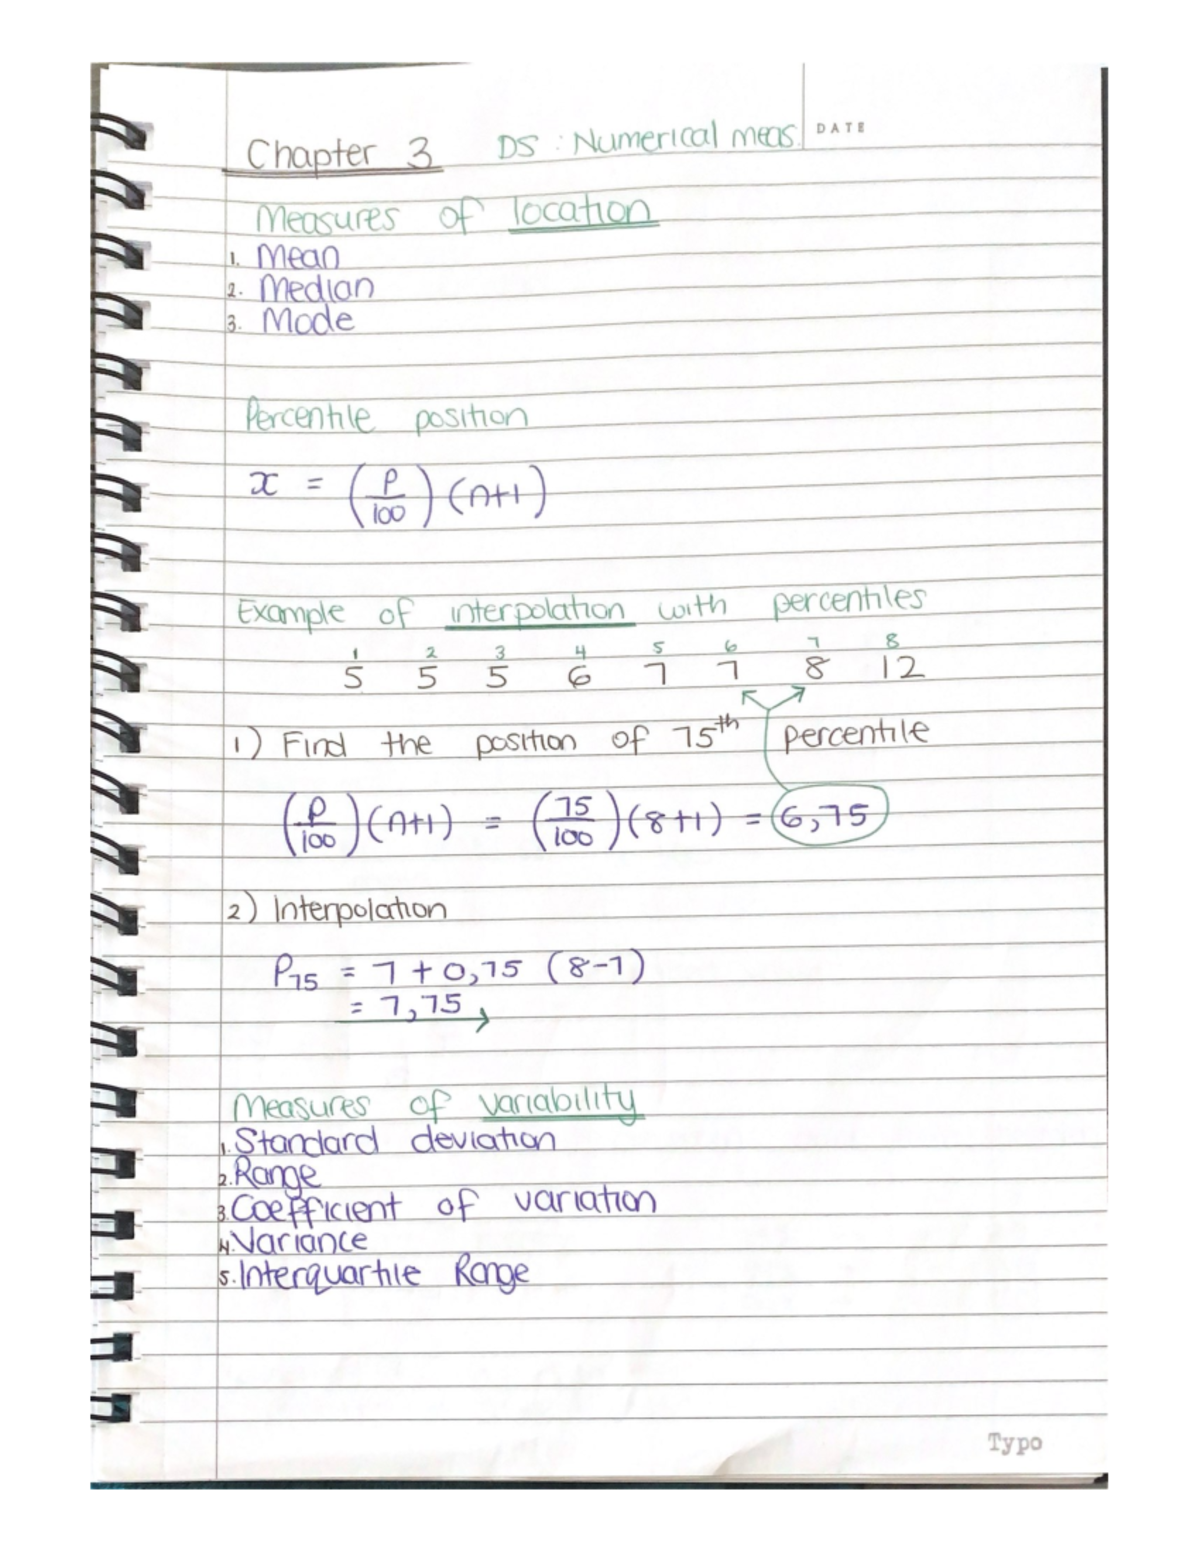 Chapter 3 DS : Numerical meas. DATE
Measures of location
1. Mean
2. Median
3. Mode
Percentile position
x = (P/100) (n+1)
Example of interpolation with percentiles
1 2 3 4 5 6 7 8
5 5 5 6 7 7 8 12
1) Find the position of 75th percentile
(P/100)(n+1) = (75/100)(8+1) = 6,75
2) Interpolation
P75 = 7 + 0,75 (8-7)
= 7,75
Measures of variability
1. Standard deviation
2. Range
3. Coefficient of variation
4. Variance
5. Interquartile Range
Typo